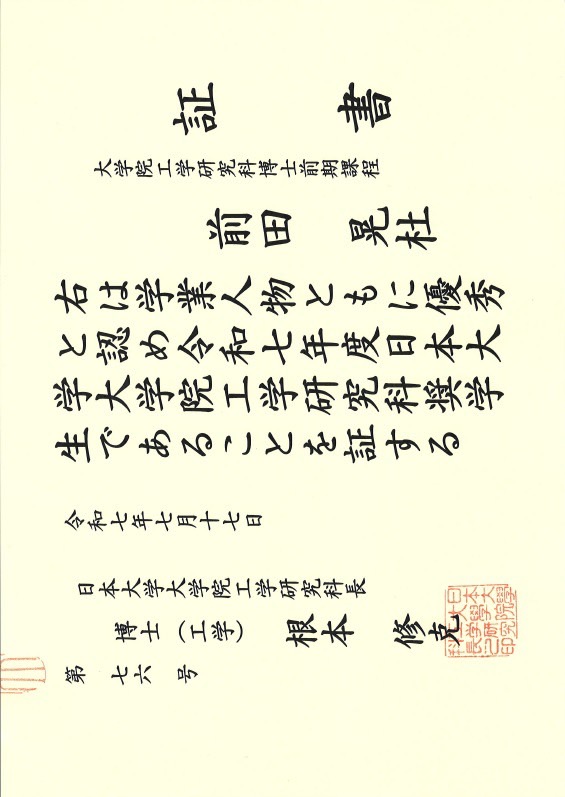 証書
大学院工学研究科博士前期課程
前田 晃杜
右は学業人物ともに優秀
と認め令和七年度日本大
学大学院工学研究科奨学
生であることを証する
令和七年七月十七日
日本大学大学院工学研究科長
博士（工学） 根本 修克
第 七六 号